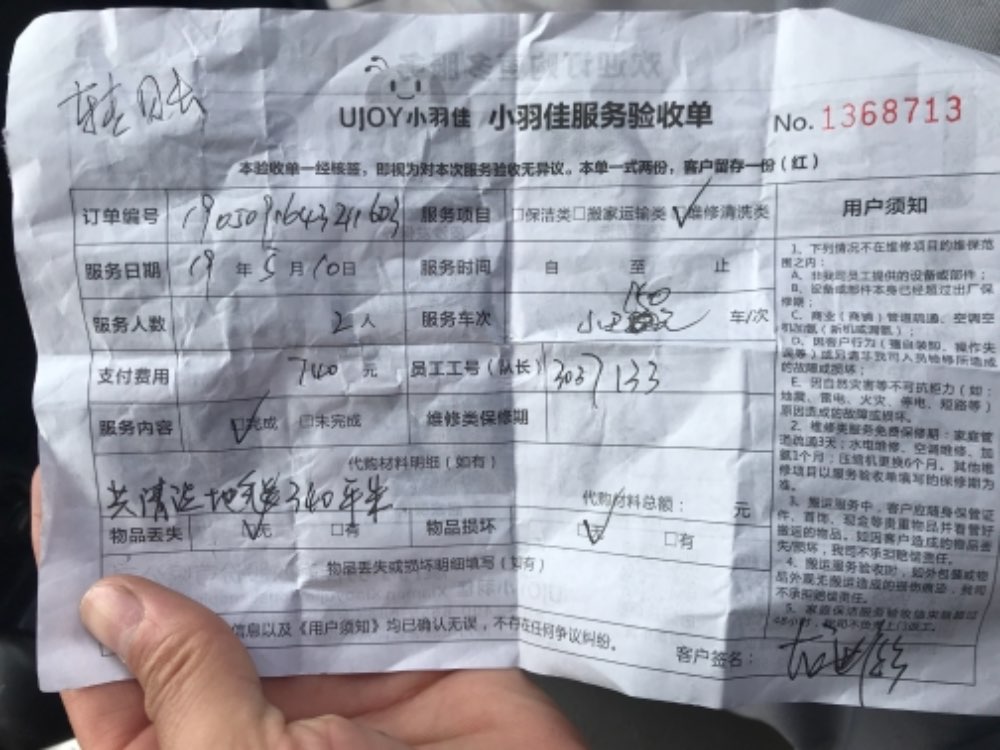 UJOY小羽佳 小羽佳服务验收单
No. 1368713
本验收单一经核签，即视为对本次服务验收无异议。本单一式两份，客户留存一份（红）
订单编号 1905091643211603 服务项目 □保洁类□搬家运输类☑维修清洗类
服务日期 19 年 5 月 10 日 服务时间 自 至 止
服务人数 2 人 服务车次 150 车/次
支付费用 740 元 员工工号（队长） 3037133
服务内容 ☑完成 □未完成 维修类保修期
代购材料明细（如有）
共清洗地毯340平米
代购材料总额： 元
物品丢失 ☑无 □有 物品损坏 ☑无 □有
物品丢失或损坏明细填写（如有）
信息以及《用户须知》均已确认无误，不存在任何争议纠纷。
客户签名：
用户须知
1、下列情况不在维修项目的维保范
围之内：
A、非我司员工提供的设备或部件；
B、设备或部件本身已经超过出厂保
修期；
C、商业（商铺）管道疏通、空调空
机加氨（新机或漏氨）；
D、因客户行为（擅自装卸、操作失
误等）或另请非我司人员检修所造成
的故障或损坏；
E、因自然灾害等不可抗拒力（如：
地震、雷电、火灾、停电、短路等）
原因造成的故障或损坏。
2、维修类服务免费保修期：家庭管
道疏通3天；水电维修、空调维修、加
氨1个月；压缩机更换6个月。其他维
修项目以服务验收单填写的保修期为
准。
3、搬运服务中，客户应随身保管证
件、首饰、现金等贵重物品并看管好
搬运的物品。如因客户造成的物品丢
失/损坏，我司不承担赔偿责任。
4、搬运服务验收时，如外包装或物
品外观无搬运造成的损伤痕迹，我司
不承担赔偿责任。
5、家庭保洁服务验收结束后超过
48小时，我司不负责上门返工。